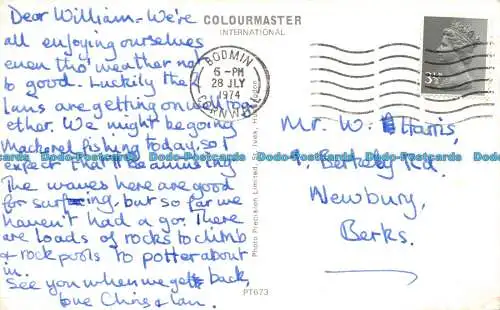 Dear William - We're
all enjoying ourselves
even tho' weather not
to good. Luckily the
Ians are getting on well tog
ether. We might be going
Mackerel fishing today, so I
expect that'll be amusing
The waves here are good
for surfing, but so far we
haven't had a go. There
are loads of rocks to climb
& rock pools to potter about
in.
See you when we get back,
love Chris & Ian.
COLOURMASTER
INTERNATIONAL
BODMIN
6 - PM
28 JLY
1974
CORNWALL
3½
Mr. W. Harris,
9, Berkeley Rd.
Newbury,
Berks.
Photo Precision Limited, St. Ives, Huntingdon
PT673
Dodo-Postcards Dodo-Postcards Dodo-Postcards Dodo-Postcards